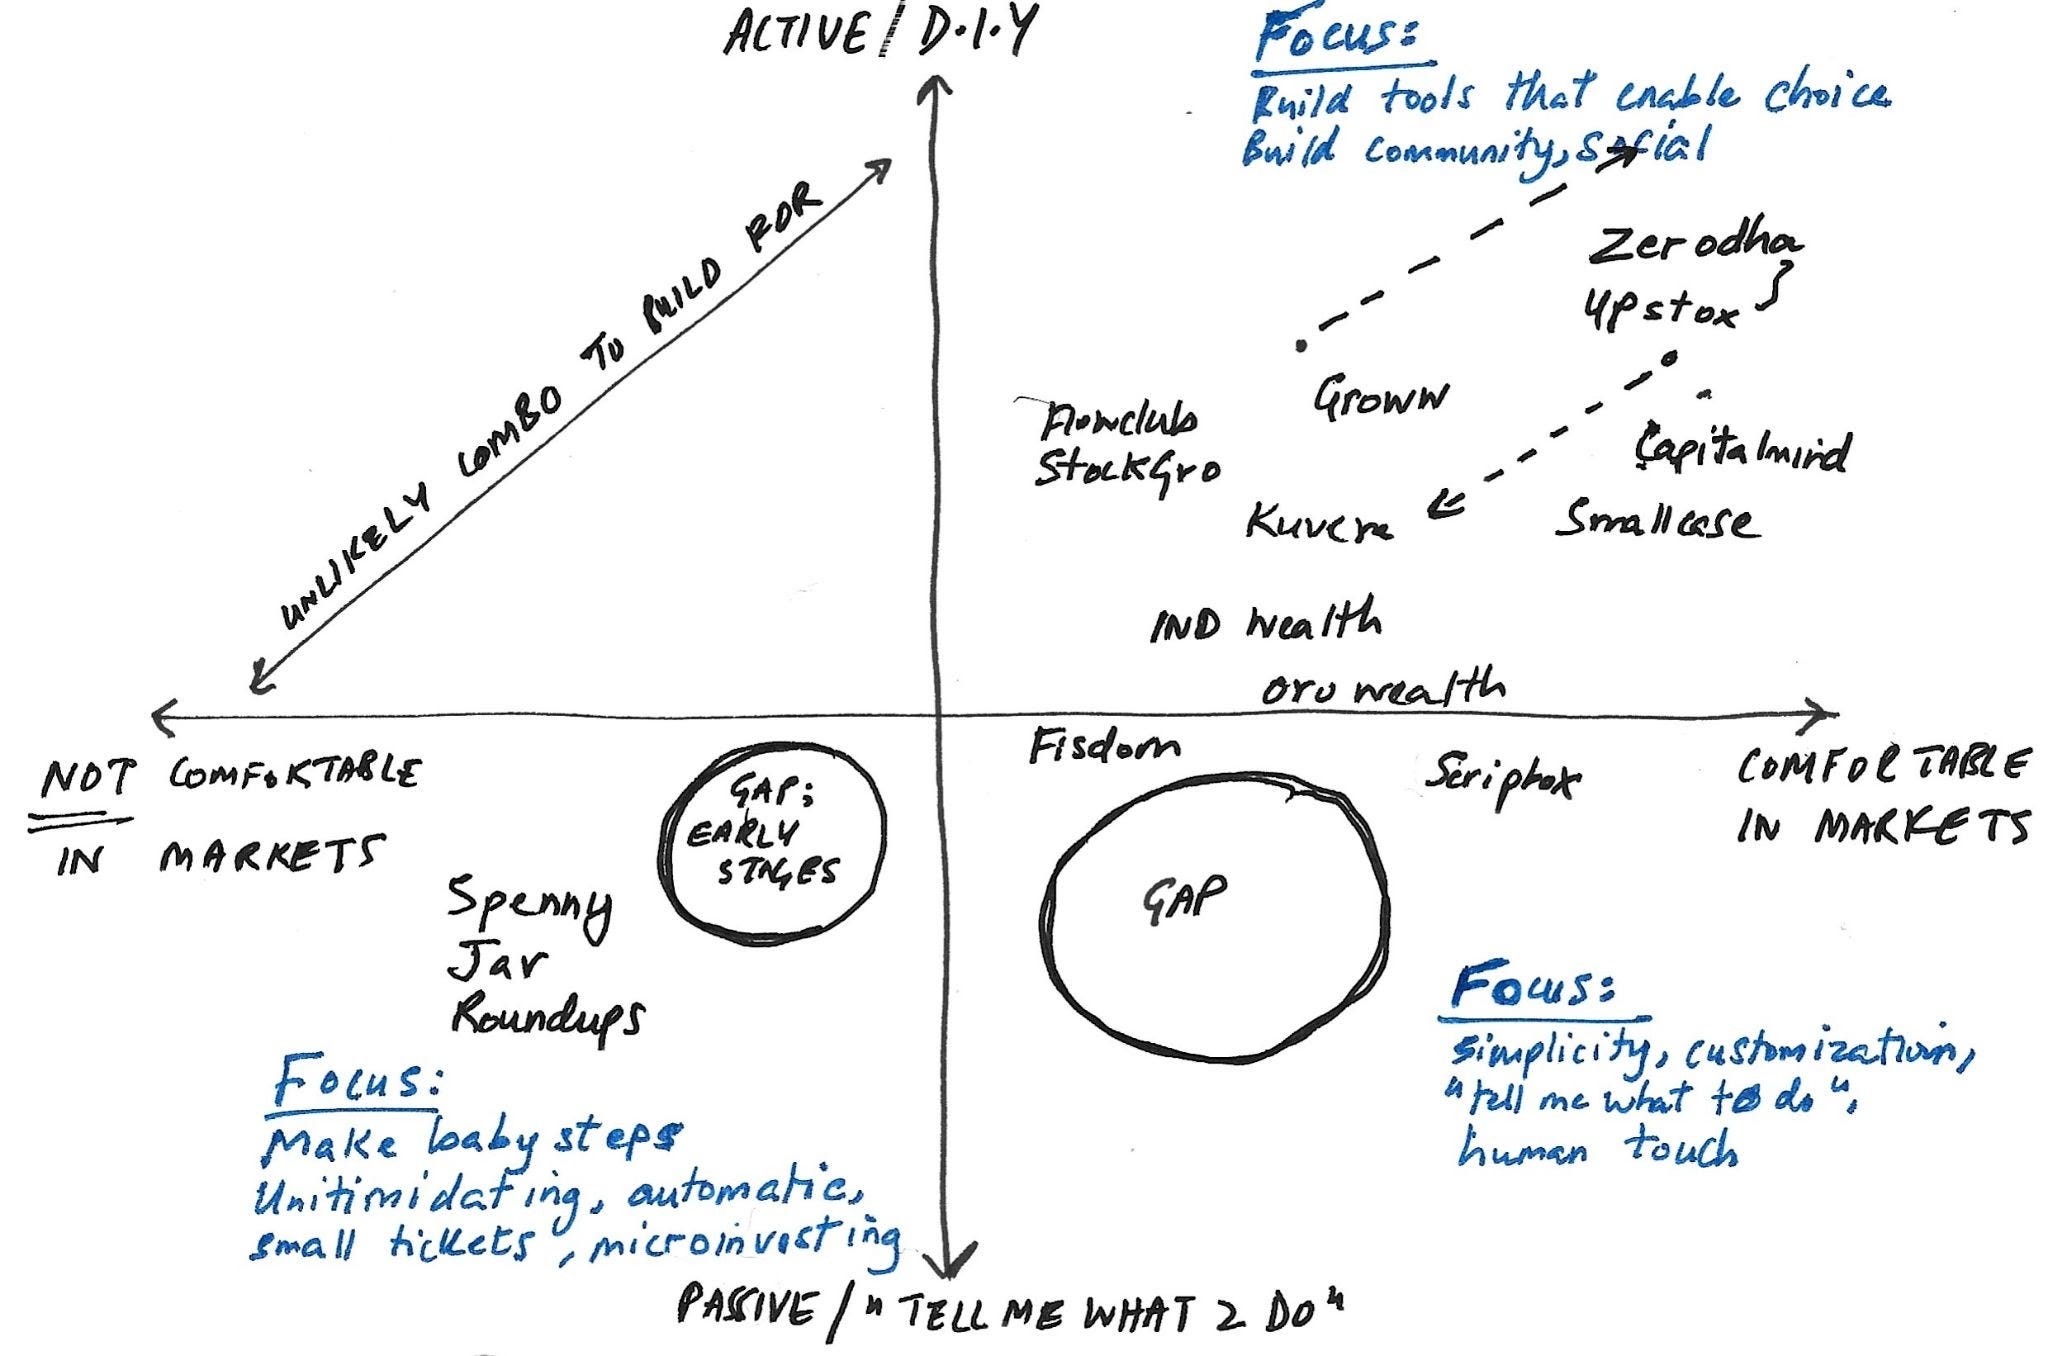 ACTIVE / D.I.Y
Focus:
Build tools that enable choice
Build community, social
UNLIKELY COMBO TO BUILD FOR
Zerodha
Upstox
Groww
Flowclub
StockGro
Capitalmind
Kuvera
Smallcase
IND Wealth
Oro wealth
Fisdom
Scripbox
NOT COMFORTABLE
IN MARKETS
COMFORTABLE
IN MARKETS
GAP;
EARLY
STAGES
GAP
Spenny
Jar
Roundups
Focus:
Make baby steps
Unitimidating, automatic,
small tickets, microinvesting
Focus:
Simplicity, customization,
"tell me what to do",
human touch
PASSIVE / "TELL ME WHAT 2 DO"